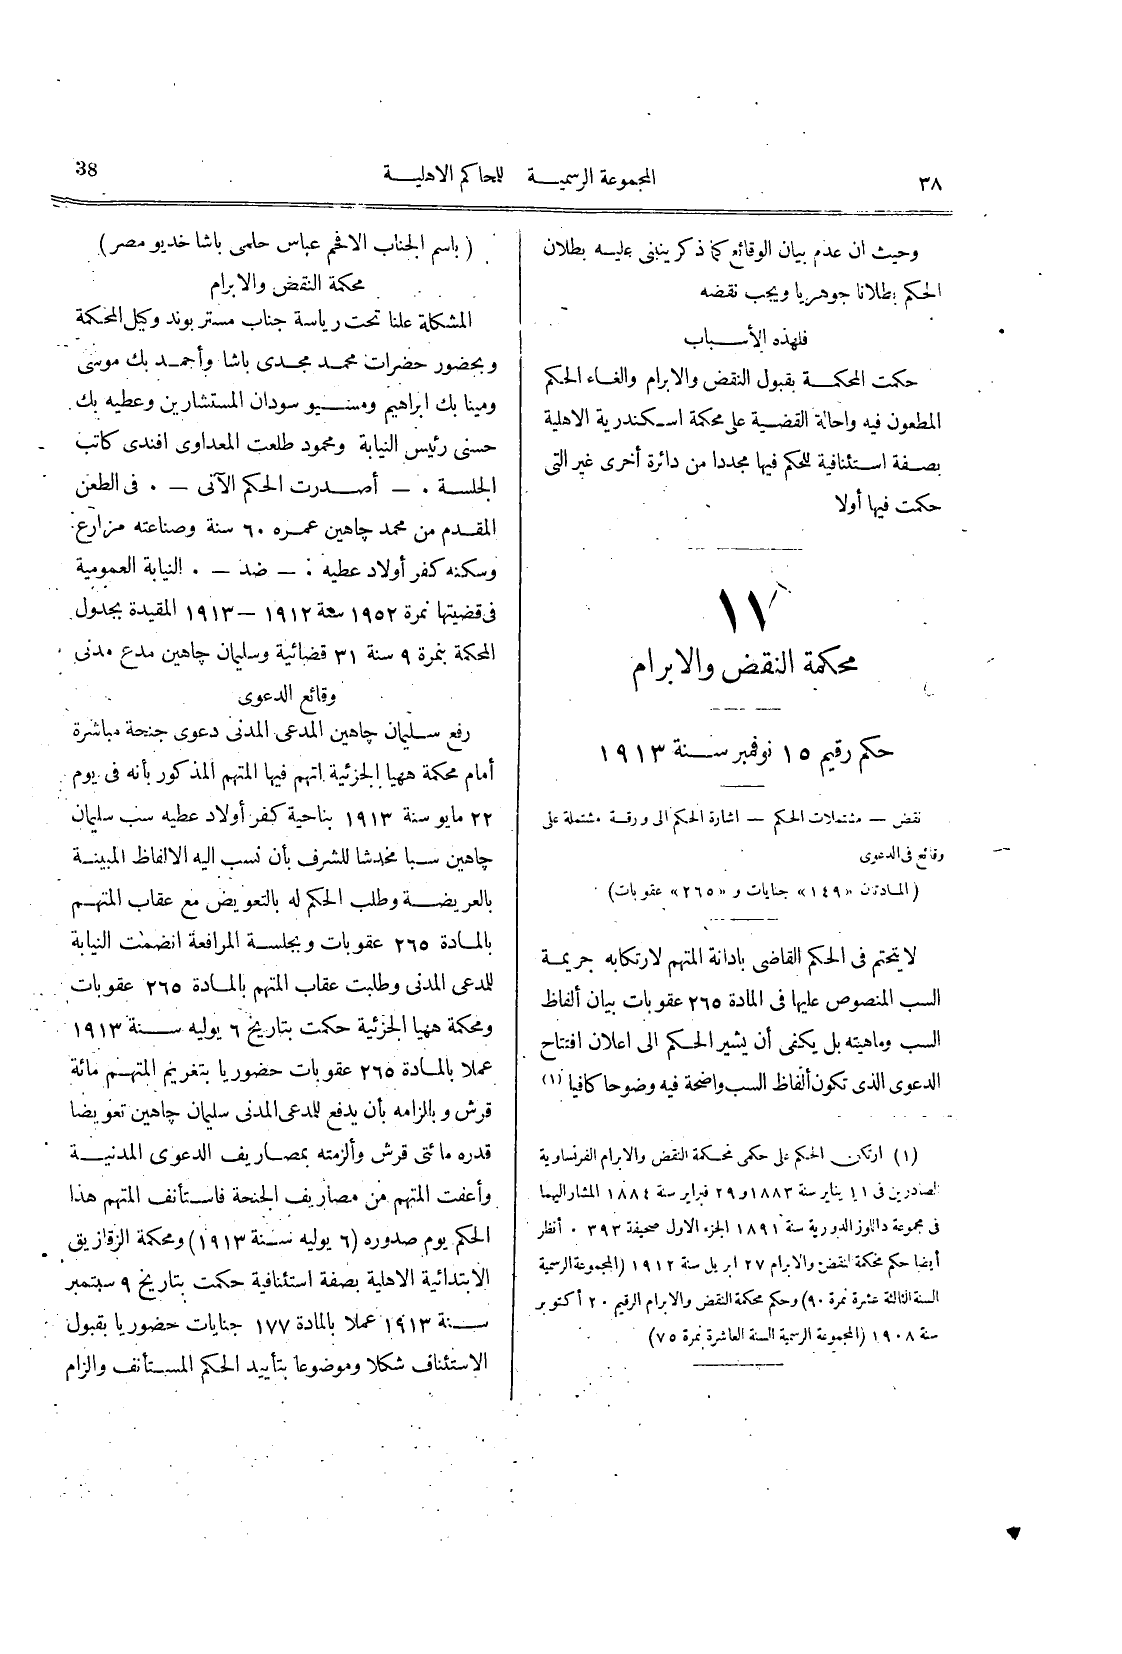 ٣٨
المجموعة الرسمية للمحاكم الاهلية
38
وحيث ان عدم بيان الوقائع كما ذكر ينبنى عليه بطلان
الحكم بطلانا جوهريا ويجب نقضه
فلهذه الأسباب
حكمت المحكمة بقبول النقض والابرام والغاء الحكم
المطعون فيه واحالة القضية على محكمة اسكندرية الاهلية
بصفة استئنافية للحكم فيها مجددا من دائرة أخرى غير التى
حكمت فيها أولا
١٧
محكمة النقض والابرام
حكم رقيم ١٥ نوفمبر سنة ١٩١٣
نقض — مشتملات الحكم — اشارة الحكم الى ورقة مشتملة على
وقائع فى الدعوى
(المادتان «١٤٩» جنايات و «٢٦٥» عقوبات)
لا يتحتم فى الحكم القاضى بادانة المتهم لارتكابه جريمة
السب المنصوص عليها فى المادة ٢٦٥ عقوبات بيان ألفاظ
السب وماهيته بل يكفى أن يشير الحكم الى اعلان افتتاح
الدعوى الذى تكون ألفاظ السب واضحة فيه وضوحا كافيا (١)
(١) ارتكن الحكم على حكمى محكمة النقض والابرام الفرنساوية
الصادرين فى ١١ يناير سنة ١٨٨٣ و ٢٩ فبراير سنة ١٨٨٤ المشار اليهما
فى مجموعة دالوز الدورية سنة ١٨٩١ الجزء الاول صحيفة ٣٩٣ . أنظر
أيضا حكم محكمة النقض والابرام ٢٧ ابريل سنة ١٩١٢ (المجموعة الرسمية
السنة الثالثة عشرة نمرة ٩٠) وحكم محكمة النقض والابرام الرقيم ٢٠ أكتوبر
سنة ١٩٠٨ (المجموعة الرسمية السنة العاشرة نمرة ٧٥)
(باسم الجناب الافخم عباس حلمى باشا خديو مصر)
محكمة النقض والابرام
المشكلة علنا تحت رياسة جناب مستر بوند وكيل المحكمة
وبحضور حضرات محمد مجدى باشا وأحمد بك موسى
ومينا بك ابراهيم ومسيو سودان المستشارين وعطيه بك
حسنى رئيس النيابة ومحمود طلعت المعداوى افندى كاتب
الجلسة . — أصدرت الحكم الآتى — . فى الطعن
المقدم من محمد چاهين عمره ٦٠ سنة وصناعته مزارع
وسكنه كفر أولاد عطيه . — ضد — . النيابة العمومية
فى قضيتها نمرة ١٩٥٢ سنة ١٩١٢ — ١٩١٣ المقيدة بجدول
المحكمة بنمرة ٩ سنة ٣١ قضائية وسليمان چاهين مدع مدنى
وقائع الدعوى
رفع سليمان چاهين المدعى المدنى دعوى جنحة مباشرة
أمام محكمة ههيا الجزئية اتهم فيها المتهم المذكور بأنه فى يوم
٢٢ مايو سنة ١٩١٣ بناحية كفر أولاد عطيه سب سليمان
چاهين سبا مخدشا للشرف بأن نسب اليه الالفاظ المبينة
بالعريضة وطلب الحكم له بالتعويض مع عقاب المتهم
بالمادة ٢٦٥ عقوبات وبجلسة المرافعة انضمت النيابة
للمدعى المدنى وطلبت عقاب المتهم بالمادة ٢٦٥ عقوبات
ومحكمة ههيا الجزئية حكمت بتاريخ ٦ يوليه سنة ١٩١٣
عملا بالمادة ٢٦٥ عقوبات حضوريا بتغريم المتهم مائة
قرش وبالزامه بأن يدفع للمدعى المدنى سليمان چاهين تعويضا
قدره مائتى قرش وألزمته بمصاريف الدعوى المدنية
وأعفت المتهم من مصاريف الجنحة فاستأنف المتهم هذا
الحكم يوم صدوره (٦ يوليه سنة ١٩١٣) ومحكمة الزقازيق
الابتدائية الاهلية بصفة استئنافية حكمت بتاريخ ٩ سبتمبر
سنة ١٩١٣ عملا بالمادة ١٧٧ جنايات حضوريا بقبول
الاستئناف شكلا وموضوعا بتأييد الحكم المستأنف والزام